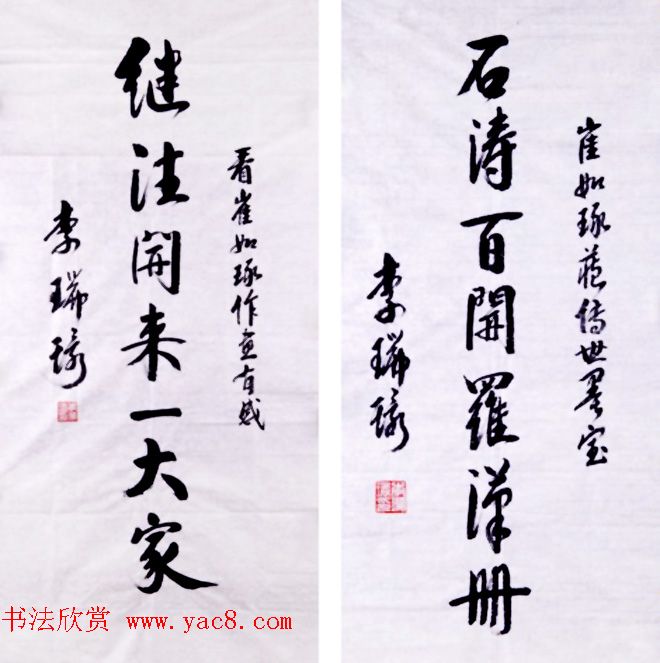 崔如琢藏传世墨宝
石涛百開羅漢册
李瑞環
看崔如琢作画有感
继往開来一大家
李瑞環
书法欣赏 www.yac8.com